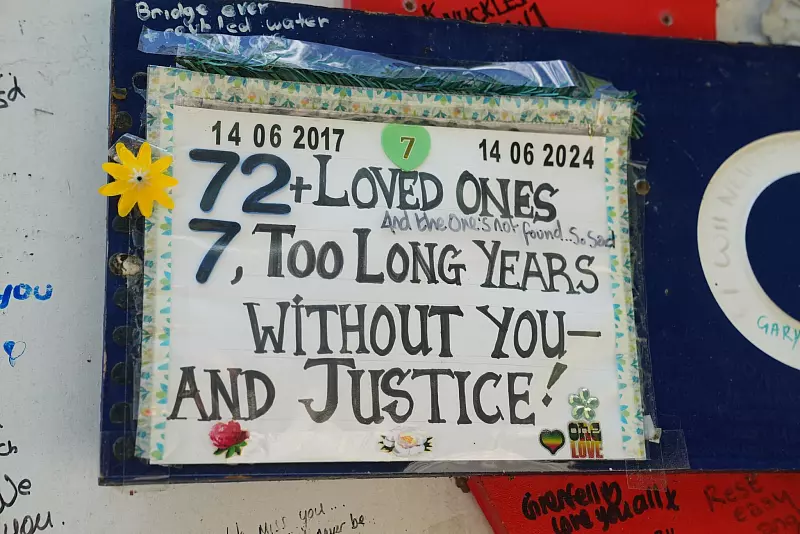 Bridge over
troubled water
KNUCKLES
14 06 2017
7
14 06 2024
72+LOVED ONES
And the one's not found...So Sad
7, TOO LONG YEARS
WITHOUT YOU—
AND JUSTICE!
ONE
LOVE
GARY
you
We
you.
MISS YOU...
never be
Grenfell
Love you all x
Rest
easy